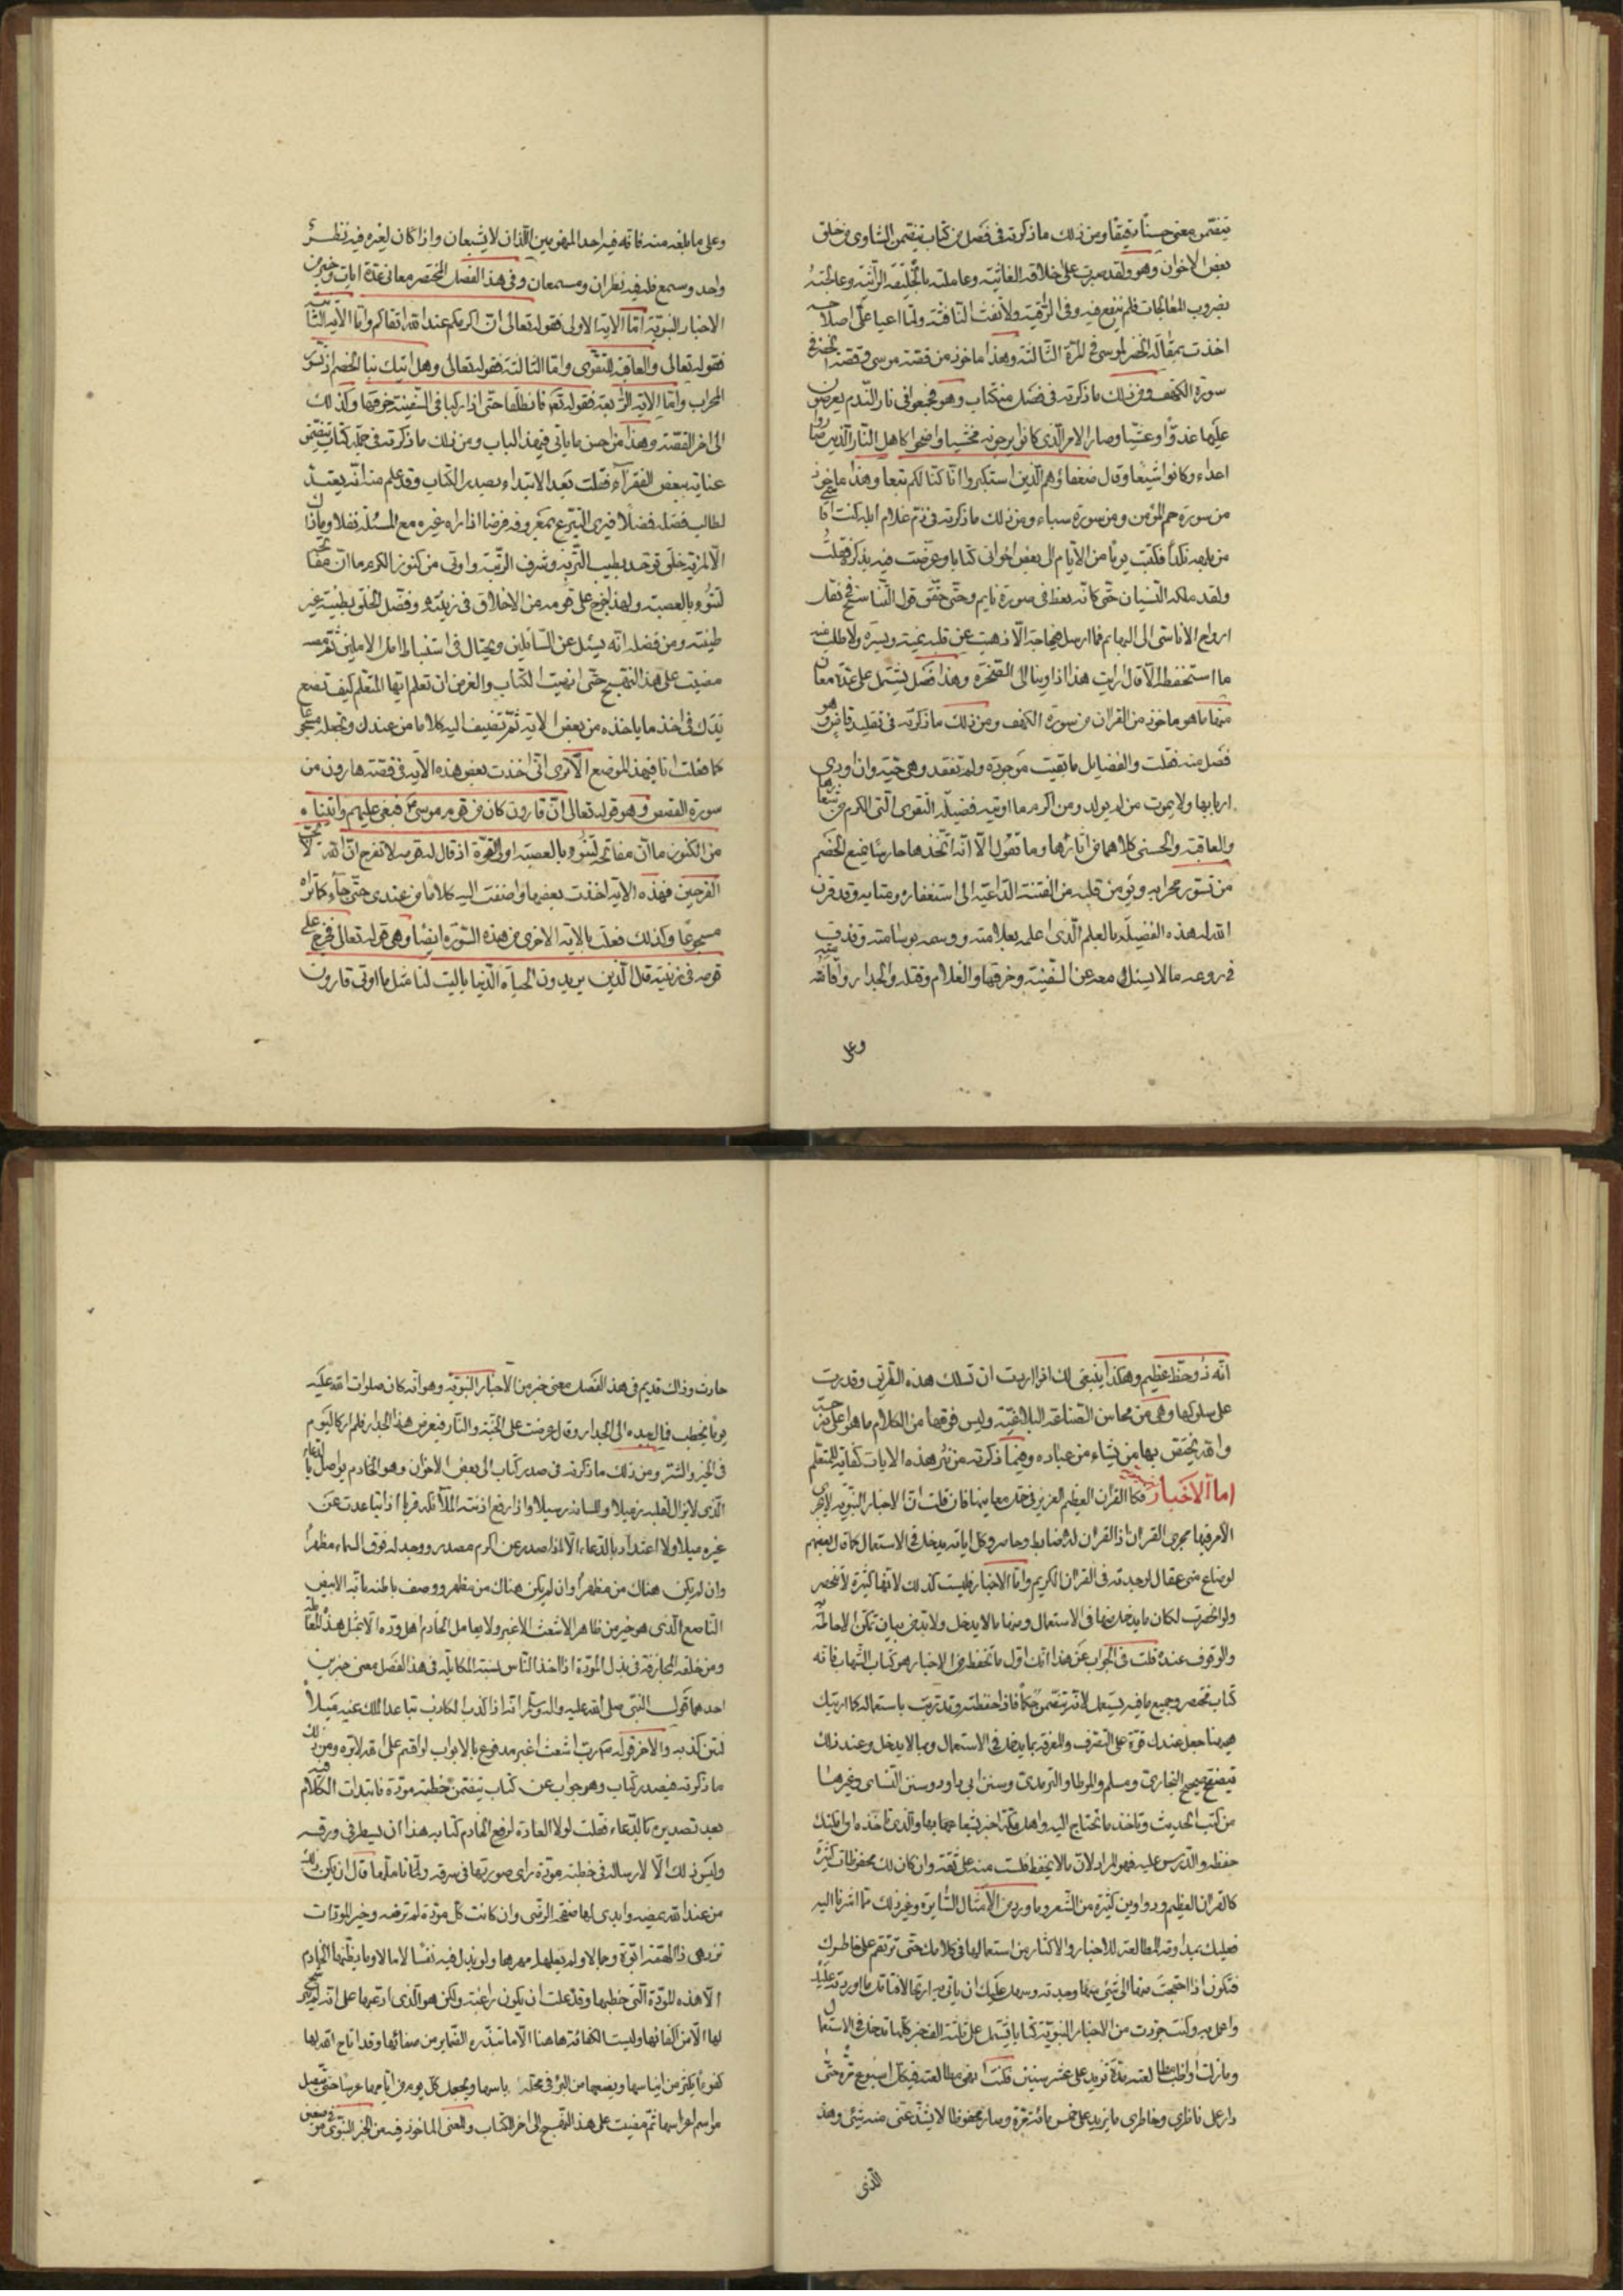 يتضمن معنى حسنا دقيقا ومن ذلك ما ذكرته فى فصل من كتاب يتضمن الشكوى من خلق
بعض الاخوان وهو ولقد صبرت على اخلاقه العاتية وعاملته بالخليقة الرائية وعالجته
بضروب المعالجات فلم تنفع فيه رقى الراقية ولا نفث النافثة ولما اعيا على اصلاحه
اخذت بمقالة الخضر لموسى فى المرة الثالثة وهذا ماخوذ من قصة موسى وقصة الخضر فى
سورة الكهف ومن ذلك ما ذكرته فى فصل من كتاب وهو فجمعوا فى نار الندم يعرضون
عليها غدوا وعشيا وصار الامر الذى كانوا يرجونه مخشيا واضحوا كاهل النار الذين صاروا
اعداء وكانوا شيعا وقال ضعفاؤهم الذين استكبروا انا كنا لكم تبعا وهذا ماخوذ
من سورة حم المؤمن ومن سورة سباء ومن ذلك ما ذكرته فى ذم غلام ابله كنت اقاسى
من بلهه نكدا فكتبت يوما من الايام الى بعض اخوانى كتابا وعرضت فيه بذكره فقلت
ولقد ملكه النسيان حتى كانه يقظ فى صورة نايم وحتى حقق قول التناسخ فى نقل
ارواح الاناسى الى البهايم فما ارسل فى حاجة الا ذهبت عن قلبه يمنة ويسرة ولا طلب منه
ما استحفظه الا قال ارايت هذا اذ اوينا الى الصخرة وهذا فصل يشتمل على عدة معان
منها ما هو ماخوذ من القران من سورة الكهف ومن ذلك ما ذكرته فى تقليد قاض وهو
فصل منه فقلت والفضايل ما بقيت موجودة ولم تفقد وهى حية وان اودى
اربابها ولا يموت من لم يولد ومن اكرم ما اوتيه فضيلة التقوى التى الكرم من شيعها
والعاقبة والحسنى كلاهما من اثارها وما نقول الا انه اتخذها حارسا يمنع الخصم
من تسور محرابه ويؤمن قلبه من الفتنة الداعية الى استغفاره ومتابه وقد قرن
الله له هذه الفضيلة بالعلم الذى اعلمه بعلامته ووسمه بوسامته وقذف
فى روعه ما لا يسئل معه عن السفينة وخرقها والغلام وقتله والجدار واقامته
وعلى
وعلى ما بلغه منه فانه فيه احد المنهومين اللذان لا يشبعان واذا كان لغيره فيه نظر
واحد وسمع فله فيه نظران ومسمعان وفى هذا الفصل المختصر معانى عدة ايات وخبر من
الاخبار النبوية اما الاية الاولى فقوله تعالى ان اكرمكم عند الله اتقاكم واما الاية الثانية
فقوله تعالى والعاقبة للتقوى واما الثالثة فقوله تعالى وهل اتيك نبا الخصم اذ تسوروا
المحراب واما الاية الرابعة فقوله تعالى فانطلقا حتى اذا ركبا فى السفينة خرقها وكذلك
الى اخر القصة وهذا من احسن ما ياتى فى هذا الباب ومن ذلك ما ذكرته فى جملة كتاب يتضمن
عناية ببعض الفقرآء فقلت بعد الابتداء بصدر الكتاب وقد علم منه انه يعتد
لطالب فضله فضلا فيرى التبرع بمعروفه فرضا اذا راه غيره مع المسئلة نفلا وما ذاك
الا لمزية خلق توحد بطيب التربة وشرف الرتبة واوتى من كنوز الكرم ما ان مفاتحه
لتنؤ بالعصبة ولهذا خرج على قومه من الاخلاق فى زينته وفضل الخلق بطينة غير
طينته ومن فضله انه يسئل عن السائلين ويحتال فى استنباط امل الاملين ثم
مضيت على هذا النهج حتى انهيت الكتاب والغرض ان تعلم ايها المتعلم كيف تضع
يدك فى اخذ ما ياخذه من بعض الاية ثم تضيف اليه كلاما من عندك وتجعله مسجوعا
كما فعلت انا فى هذا الموضع الا ترى انى اخذت بعض هذه الاية فى قصة هارون من
سورة القصص وهو قوله تعالى ان قارون كان من قوم موسى فبغى عليهم واتيناه
من الكنوز ما ان مفاتحه لتنؤ بالعصبة اولى القوة اذ قال له قومه لا تفرح ان الله لا يحب
الفرحين فهذه الاية اخذت بعضها واضفت اليه كلاما من عندى حتى جآء كما تراه
مسجوعا وكذلك فعلت بالاية الاخرى من هذه السورة ايضا وهى قوله تعالى فخرج على
قومه فى زينته قال الذين يريدون الحياة الدنيا يا ليت لنا مثل ما اوتى قارون
انه لذو حظ عظيم وهكذا ينبغى لك اذا اردت ان تسلك هذه الطريق وقدرت
على سلوكها وهى من محاسن الصناعة البلاغية وليس فوقها من الكلام ما هو اعلى درجة
والله يختص بها من يشاء من عباده وفيما ذكرته من نثر هذه الايات كفاية للمتعلم
اما الاخبار فكا القران العظيم العزيز فى حل معانيها فان قلت ان الاخبار النبوية لا يجرى
الامر فيها مجرى القران اذ القران له ضابط وحاصر وكل اياته يدخل فى الاستعمال كما قال بعضهم
لو ضاع منى عقال لوجدته فى القران الكريم واما الاخبار فليست كذلك لانها كثيرة لا تنحصر
ولو انحصرت لكان ما يدخل منها فى الاستعمال ومنها ما لا يدخل ولا بد من بيان يمكن الاحاطة
والوقوف عنده قلت فى الجواب عن هذا انك اول ما تحفظ من الاخبار هو كتاب الشهاب فانه
كتاب مختصر وجميع ما فيه يستعمل لانه يتضمن حكما فاذا حفظته وتدربت باستعماله كما اريتك
هيهنا حصل عندك قوة على التصرف والمعرفة بما يدخل فى الاستعمال وبما لا يدخل وعند ذلك
تتصفح صحيح البخارى ومسلم والموطا والترمذى وسنن ابى داود وسنن النسائى وغيرها
من كتب الحديث وتاخذ ما تحتاج اليه واهل مكة اخبر بشعابها والذى تاخذه ان امكنك
حفظه والدرس عليه فهو المراد لان ما لا يحفظ فلست منه على ثقة وان كان لك محفوظات كثيرة
كالقران العظيم ودواوين كثيرة من الشعر وما ورد من الامثال السايرة وغير ذلك مما اشرنا اليه
فعليك بمداومة المطالعة للاخبار والاكثار من استعمالها فى كلامك حتى ترتقم على خاطرك
فتكون اذا احتجت منها الى شئ وجدته وسهل عليك ان ياتى به ارتجالا فتامل ما اوردته عليك
واعمل به وكنت جردت من الاخبار النبوية كتابا يشتمل على ثلثة الف خبر كلها تدخل فى الاستعمال
وما زلت اواظب مطالعته مدة تزيد على عشر سنين فكنت انهى مطالعته فى كل اسبوع مرة حتى
دار على ناظرى وخاطرى ما يزيد على خمس مائة مرة وصار محفوظا لا يشذ عنى منه شئ وهذا
الذى
حادث وذاك قديم فى هذا الفصل معنى خبر من الاخبار النبوية وهو انه كان صلوات الله عليه
يوما يخطب فمال بيده الى الجدار وقال عرضت على الجنة والنار فى عرض هذا الجدار فلم ار كاليوم
فى الخير والشر ومن ذلك ما ذكرته فى صدر كتاب الى بعض الاخوان وهو الخادم يواصل بالدعاء
الذى لا يزال لقلبه زميلا وللسانه رسيلا واذا رفع اذنته الملائكة قربا اذا تباعدت عن
غيره ميلا ولا اعتداد بالدعاء الا اذا صدر عن اكرم مصدر ووجد له فوق السماء مظهرا
وان لم يكن هناك من مظهر وان لم يكن هناك من مظهر ووصف باطنه بانه الابيض
الناصع الذى هو خير من ظاهر الاشعث الاغبر ولا يعامل الخادم اهل وده الا بمثل هذه المعاملة
ومن خلقه المجازفة فى بذل المودة اذا اخذ الناس بسنة المكايلة فى هذا الفصل معنى خبرين
احدهما قول النبى صلى الله عليه وآله وسلم انه اذا كذب الكاذب تباعد الملك عنه ميلا
لنتن كذبه والاخر قوله رب اشعث اغبر مدفوع بالابواب لو اقسم على الله لابره ومن ذلك
ما ذكرته فى صدر كتاب وهو جواب عن كتاب يتضمن خطبة مودة فابتدات الكلام فيه
بعد تصديره بالدعاء فقلت لولا العادة لرفع الخادم كتابه هذا ان يسطر فى ورقه
وليس ذلك الا لارساله فى خطبة مودة راى صورتها فى سرقه ولما تاملها قال ان يكن ذلك
من عند الله يمضه وابدى لها صفحة الرضى وان كانت كل مودة لم ترضه وخير المودات
تزهى ذا الهمة ابوة وجمالا ولم يغلها مهرها ولو بذل فيه نفسا لا مالا وما يظنها الخادم
الا هذه المودة التى خطبها وقد علت ان يكون راغبة ولكن هو الذى ارغبها على انه لم
لها الا من اكفائها وليست الكفائة هاهنا الا ما تبذره الضماير من صفائها وقد اتاح الله لها
كفوءا يكثر من ايناسها ويضعها من البر فى محلة باسها ويجعل كل يوم من ايامها عرسا حتى يتصل
مراسم اعراسها ثم مضيت على هذا النهج الى اخر الكتاب والمعنى الماخوذ فيه من الخبر النبوى